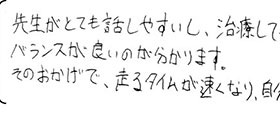 先生がとても話しやすいし、治療して
バランスが良いのが分かります。
そのおかげで、走るタイムが速くなり、自分